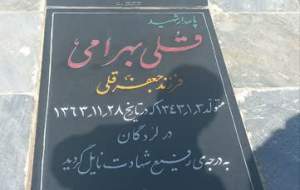 پاسدار شهید
قلی بهرامی
فرزند جعفرقلی
متولد ۱۳۴۳٫۱٫۲ که در تاریخ ۱۳۶۳٫۱۱٫۲۸
در لردگان
به درجه‌ی رفیع شهادت نایل گردید